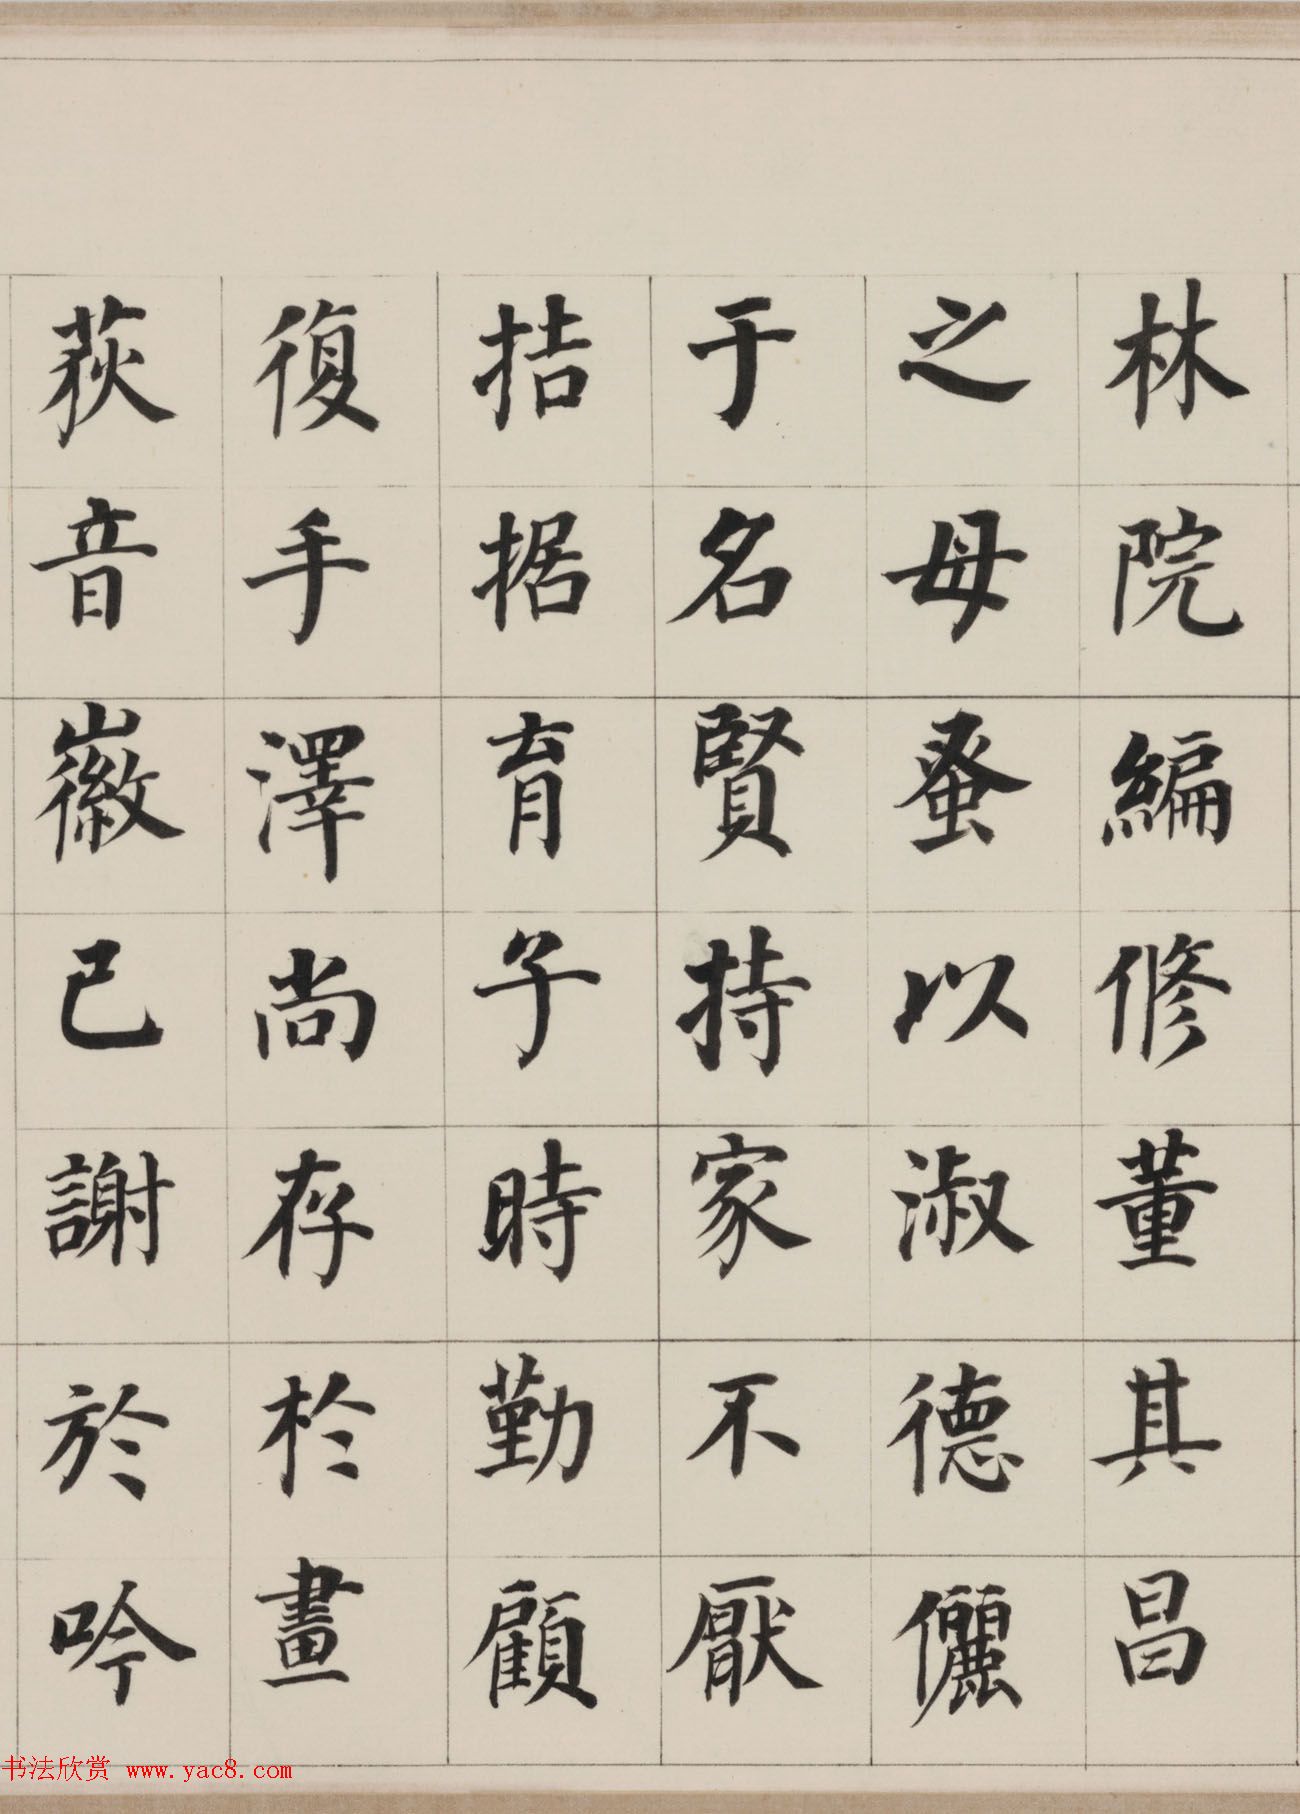 林院編修董其昌
之母蚤以淑德儷
于名賢持家不厭
拮据育子時勤顧
復手澤尚存於畫
荻音徽已謝於吟
书法欣赏 www.yac8.com